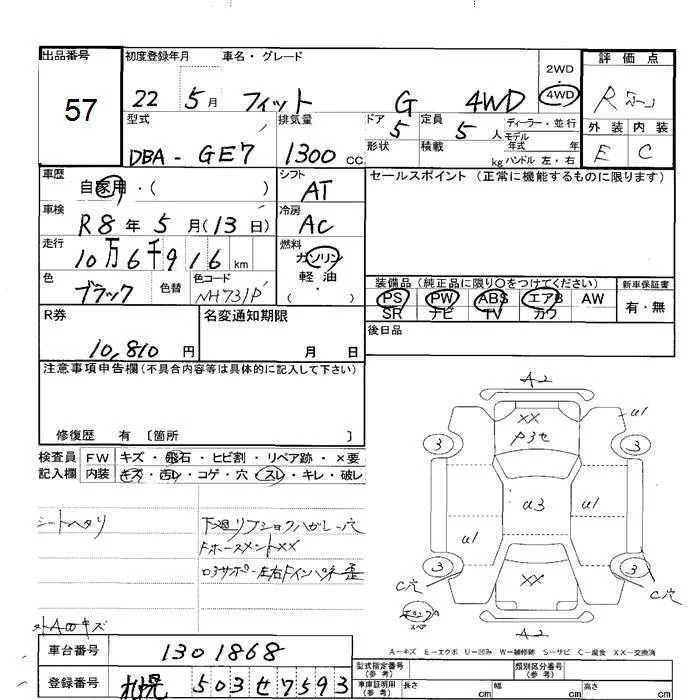 出品番号
57
初度登録年月
22 5月
車名・グレード
フィット G 4WD
2WD
・
4WD
評価点
R
外装 内装
E C
型式
DBA-GE7
排気量
1300 CC
ドア
5
定員
5人
ディーラー・並行
モデル
年式 年
形状
積載 kg
ハンドル 左・右
車歴
自家用・( )
シフト
AT
セールスポイント (正常に機能するものに限ります)
車検
R8年5月(13日)
冷房
AC
走行
10万6千916 km
燃料
ガソリン
軽油
( ・ )
色
ブラック
色替
色コード
NH731P
装備品 (純正品に限り○をつけてください)
PS PW ABS エアB AW
SR ナビ TV カワ
新車保証書
有・無
R券
10,810円
名変通知期限
月 日
後日品
注意事項申告欄(不具合内容等は具体的に記入して下さい)
修復歴 有 〔箇所 〕
検査員
記入欄
FW キズ・飛石・ヒビ割・リペア跡・×要
内装 キズ・汚レ・コゲ・穴・スレ・キレ・破レ
シートヘタリ
下廻リブショクハガレ穴
Fホースメント××
ロアサポー左右Fインパネ歪
外AのキズA
A2
××
P3セ
U1
3
3
U3
U1
U1
3
3
××
C穴
C穴
スペア
A2
A-キズ E-エクボ U-凹み W-補修跡 S-サビ C-腐食 XX-交換済
車台番号
1301868
登録番号
札幌 503せ7593
型式指定番号
(参考)
類別区分番号
(参考)
車庫証明用
(参考)
長さ cm
幅 cm
高さ cm